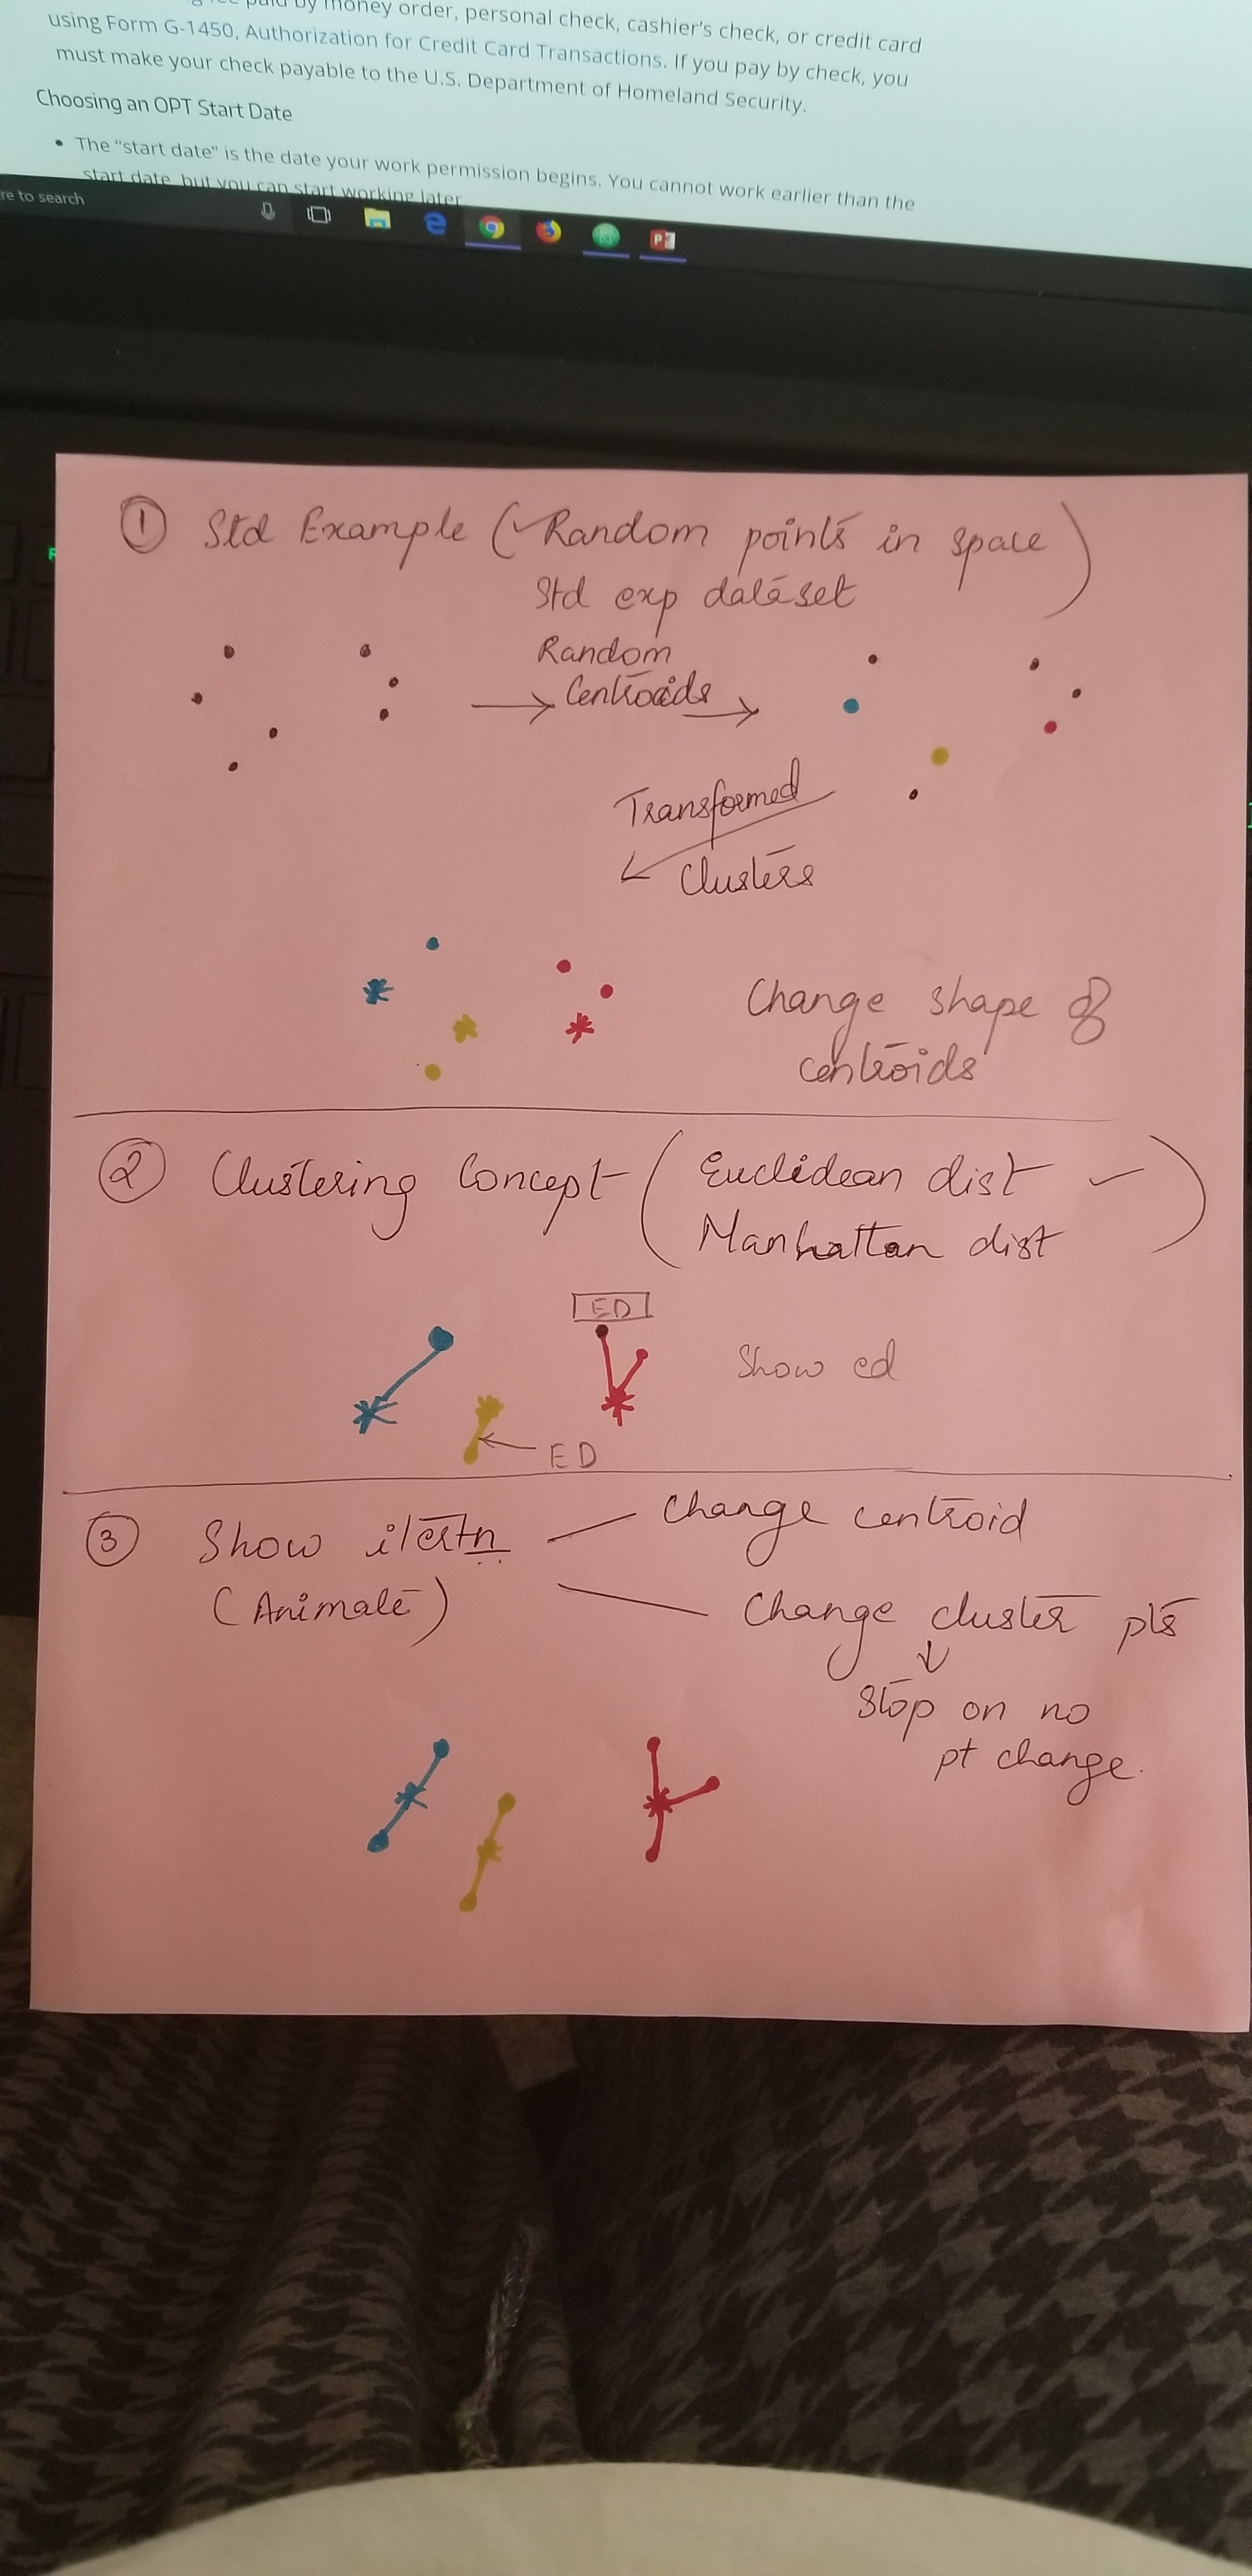 paid by money order, personal check, cashier's check, or credit card
using Form G-1450, Authorization for Credit Card Transactions. If you pay by check, you
must make your check payable to the U.S. Department of Homeland Security.
Choosing an OPT Start Date
• The “start date” is the date your work permission begins. You cannot work earlier than the
start date, but you can start working later
re to search
① Std Example (✓Random points in space)
Std exp dataset
Random
Centroids
Transformed
Clusters
Change shape of
centroids
② Clustering Concept (Euclidean dist ✓)
Manhattan dist
ED
Show ed
ED
③ Show itertn
Change centroid
(Animate)
Change cluster pts
Stop on no
pt change.